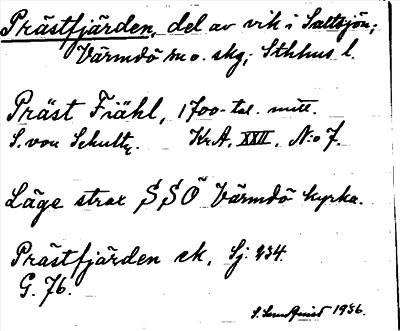 Prästfjärden, del av vik i Saltsjön;
Värmdö sn o. skg; Sthlms l.
Präst Fiähl, 1700-tal. mitt.
S. von Schultz. Kr.A. XXII. N:o 7.
Läge strax SSÖ Värmdö kyrka.
Prästfjärden ek. Sj. 234.
G. 76.
1936.